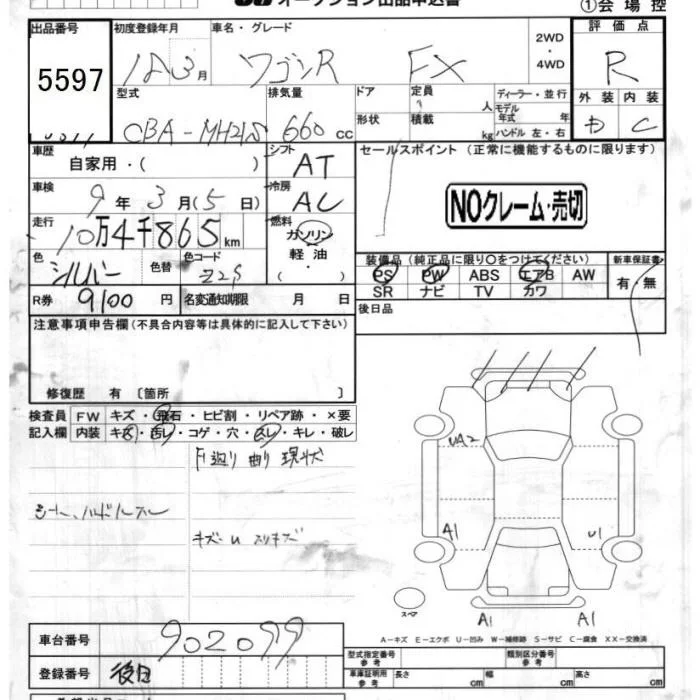 オークション出品申込書
①会場控
出品番号 初度登録年月 車名・グレード 評価点
5597 18年3月 ワゴンR FX 2WD・4WD R
型式 排気量 ドア 定員 ディーラー・並行 外装 内装
CBA-MH21S 660cc 形状 積載 人 kg モデル年式 年 ハンドル 左・右 D C
車歴 自家用・( ) シフト AT セールスポイント (正常に機能するものに限ります)
車検 9年3月(5日) 冷房 AC NOクレーム・売切
走行 10万4千865km 燃料 ガソリン 軽油 ・( )
色 シルバー 色替 色コード Z2S
装備品 (純正品に限り○をつけてください) 新車保証書
PS PW ABS エアB AW 有・無
SR ナビ TV カワ
R券 9100円 名変通知期限 月 日
後日品
注意事項申告欄(不具合内容等は具体的に記入して下さい)
修復歴 有 [箇所 ]
検査員 FW キズ・飛石・ヒビ割・リペア跡・×要
記入欄 内装 キズ・汚レ・コゲ・穴・スレ・キレ・破レ
F廻り 曲り 現状
シート、ハンドルスレ
キズ U スリキズ
UA2
A1 U1
スペア
A1 A1
A−キズ E−エクボ U−凹み W−補修跡 S−サビ C−腐食 XX−交換済
車台番号 902099
型式指定番号 参考 類別区分番号 参考
登録番号 後日
車庫証明用 参考 長さ cm 幅 cm 高さ cm